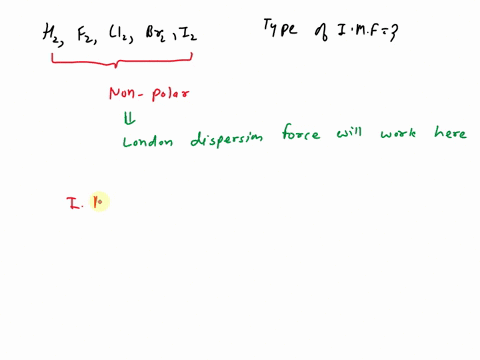 H₂, F₂, Cl₂, Br₂, I₂ Type of I.M.F=?
Non-polar
⇓
London dispersion force will work here
I.